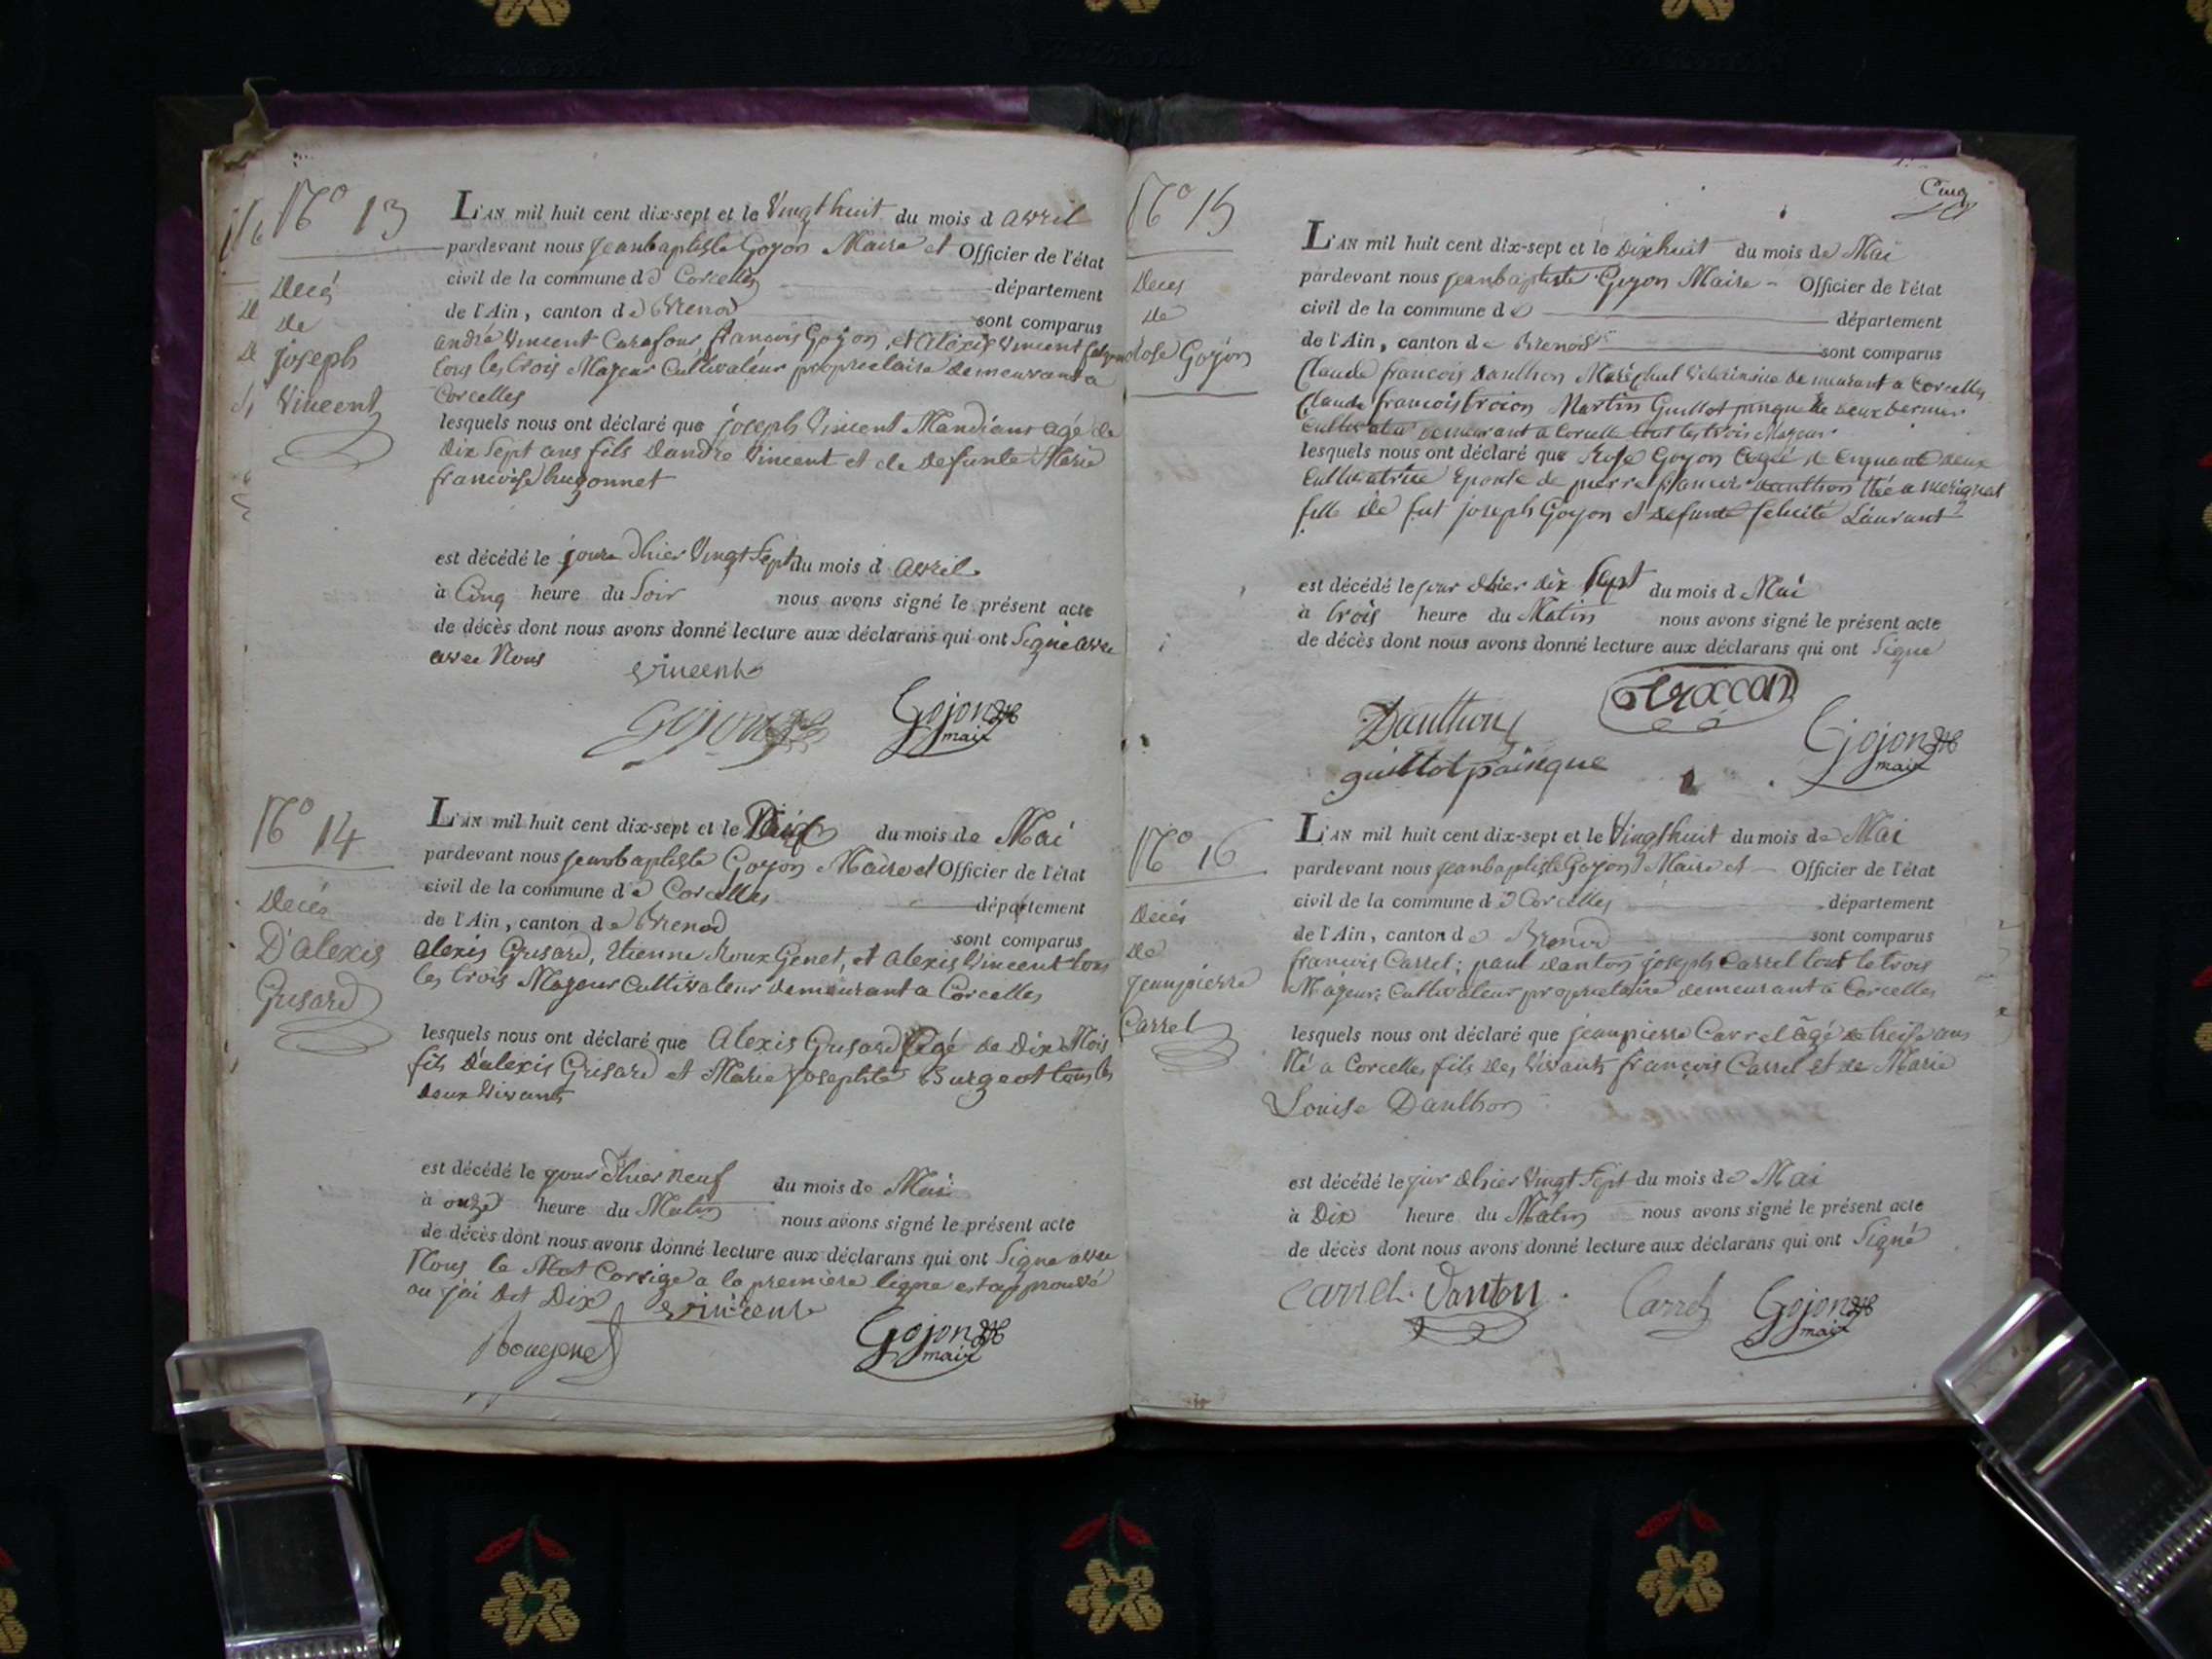 N° 13
Decé
de
joseph
Vincent
L'AN mil huit cent dix-sept et le Vingt huit du mois d avril
pardevant nous jeanbaptiste Gojon Maire et Officier de l'état
civil de la commune de Corcelles département
de l'Ain, canton de Brenod sont comparus
andré Vincent Carafour françois Gojon, et alexis Vincent
tous les trois Majeur Cultivateur propriétaire demeurant a
Corcelles
lesquels nous ont déclaré que joseph Vincent Mandiant agé de
Dix Sept ans fils Dandré Vincent et de defunte Marie
francoise hugonnet
est décédé le jour dhier Vingt Sept du mois d avril
à Cinq heure du Soir nous avons signé le présent acte
de décès dont nous avons donné lecture aux déclarans qui ont Signé avec
avec Nous
Vincent
Gojon
Gojon
maire
N° 14
Decés
D'alexis
Grisard
L'AN mil huit cent dix-sept et le Dix du mois de Mai
pardevant nous jeanbaptiste Gojon Maire et Officier de l'état
civil de la commune de Corcelles département
de l'Ain, canton de Brenod sont comparus
alexis Grisard, Etienne Roux Genet, et alexis Vincent tous
les trois Majeur Cultivateur demeurant a Corcelles
lesquels nous ont déclaré que Alexis Grisard agé de Dix Mois
fils D'alexis Grisard et Marie josephte Burgeot tous les
deux Vivants
est décédé le jour dhier neuf du mois de Mai
à onze heure du Matin nous avons signé le présent acte
de décès dont nous avons donné lecture aux déclarans qui ont Signé avec
Nous le Mot Corrigé a la première ligne est approuvé
ou j'ai dit Dix
Vincent
Rougenet
Gojon
maire
Cinq
N° 15
Deces
de
Rose Gojon
L'AN mil huit cent dix-sept et le Dixhuit du mois de Mai
pardevant nous jeanbaptiste Gojon Maire Officier de l'état
civil de la commune de département
de l'Ain, canton de Brenod sont comparus
Claude francois Danthon Maréchal Veterinaire demeurant a Corcelles
Claude francois troccon Martin Guillot pingue le deux dernier
Cultivateur demeurant a Corcelle tout les trois Majeur
lesquels nous ont déclaré que Rose Gojon Agé de Cinquante deux
Cultivatrice Epouse de pierre francois Danthon Née a
fille de fut joseph Gojon et defunte felicité Laurant
est décédé le jour dhier dix Sept du mois d Mai
à trois heure du Matin nous avons signé le présent acte
de décès dont nous avons donné lecture aux déclarans qui ont Signé
Danthon
troccon
guillot painque
Gojon
maire
N° 16
Decés
de
jeanpierre
Carrel
L'AN mil huit cent dix-sept et le Vingthuit du mois de Mai
pardevant nous jeanbaptiste Gojon Maire et Officier de l'état
civil de la commune de Corcelles département
de l'Ain, canton de Brenod sont comparus
francois Carrel; paul danton joseph Carrel tout le trois
Majeur, Cultivateur propriétaire demeurant à Corcelles
lesquels nous ont déclaré que jeanpierre Carrel âgé de treise ans
Né a Corcelles fils des Vivants françois Carrel et de Marie
Louise Danthon
est décédé le jour dhier Vingt Sept du mois de Mai
à Dix heure du Matin nous avons signé le présent acte
de décès dont nous avons donné lecture aux déclarans qui ont Signé
Carrel. Danton
Carrel
Gojon
maire